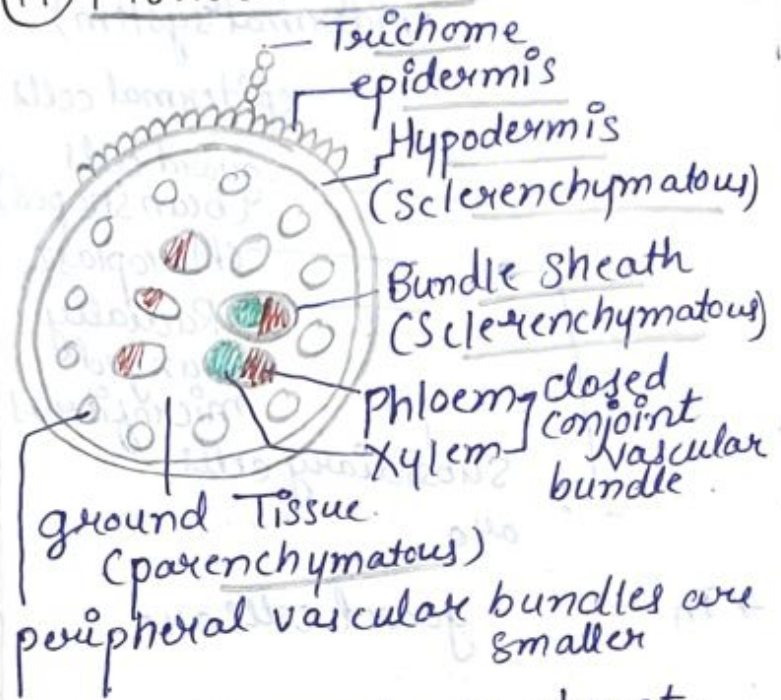 Trichome
epidermis
Hypodermis
(Sclerenchymatous)
Bundle Sheath
(Sclerenchymatous)
Phloem closed
conjoint
Xylem vascular
bundle.
ground Tissue.
(parenchymatous)
peripheral vascular bundles are
smaller